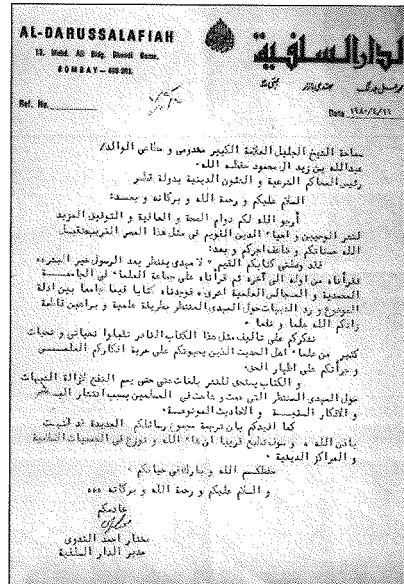 AL-DARUSSALAFIAH
13, Mohd. Ali Bldg. Bhendi Bazar,
BOMBAY - 400 003.
الدار السلفية
Ref. No.
Date ١٩٨٠/٤/١٦
سماحة الشيخ الجليل العلامة الكبير مخدومي و مطاعي الوالد/
عبدالله بن زيد ال محمود حفظه الله.
رئيس المحاكم الشرعية و الشئون الدينية بدولة قطر
السلام عليكم و رحمة الله و بركاته و بعد:
أرجو الله لكم دوام الصحة و العافية و التوفيق المزيد
لنشر التوحيد و احياء الدين القويم في مثل هذا العصر الغريب تقبل
الله حسناتكم و ضاعف اجركم و بعد:
فقد وصلني كتابكم القيم " لا مهدي ينتظر بعد الرسول خير البشر"
فقرأناه من اوله الى آخره ثم قرأناه على جماعة العلماء في الجامعة
المحمدية و المجالس العلمية اخرى، فوجدناه كتابا قيما جامعا بين ادلة
الموضوع و رد الشبهات حول المهدي المنتظر بطريقة علمية و براهين قاطعة
زادكم الله علما و
نشكركم على تأليف مثل هذا الكتاب النادر تقبلوا تحياتي و تحيات
كثير من علماء اهل الحديث الذين يحيونكم على حرية افكاركم
و جرأتكم على اظهار الحق.
و الكتاب يستحق للنشر بلغات شتى حتى يعم النفع لازالة الشبهات
حول المهدي المنتظر التي و شاعت في المسلمين بسبب انتشار
و الافكار و الاحاديث الموضوعة.
كما افيدكم بان ترجمة مجموع رسائلكم العديدة قد انتهت
باذن الله و سوف تطبع قريبا ان شاء الله و توزع في الجمعيات
و المراكز الدينية.
حفظكم الله و بارك في حياتكم
و السلام عليكم و رحمة الله و بركاته
خادمكم
مختار احمد الندوي
مدير الدار السلفية